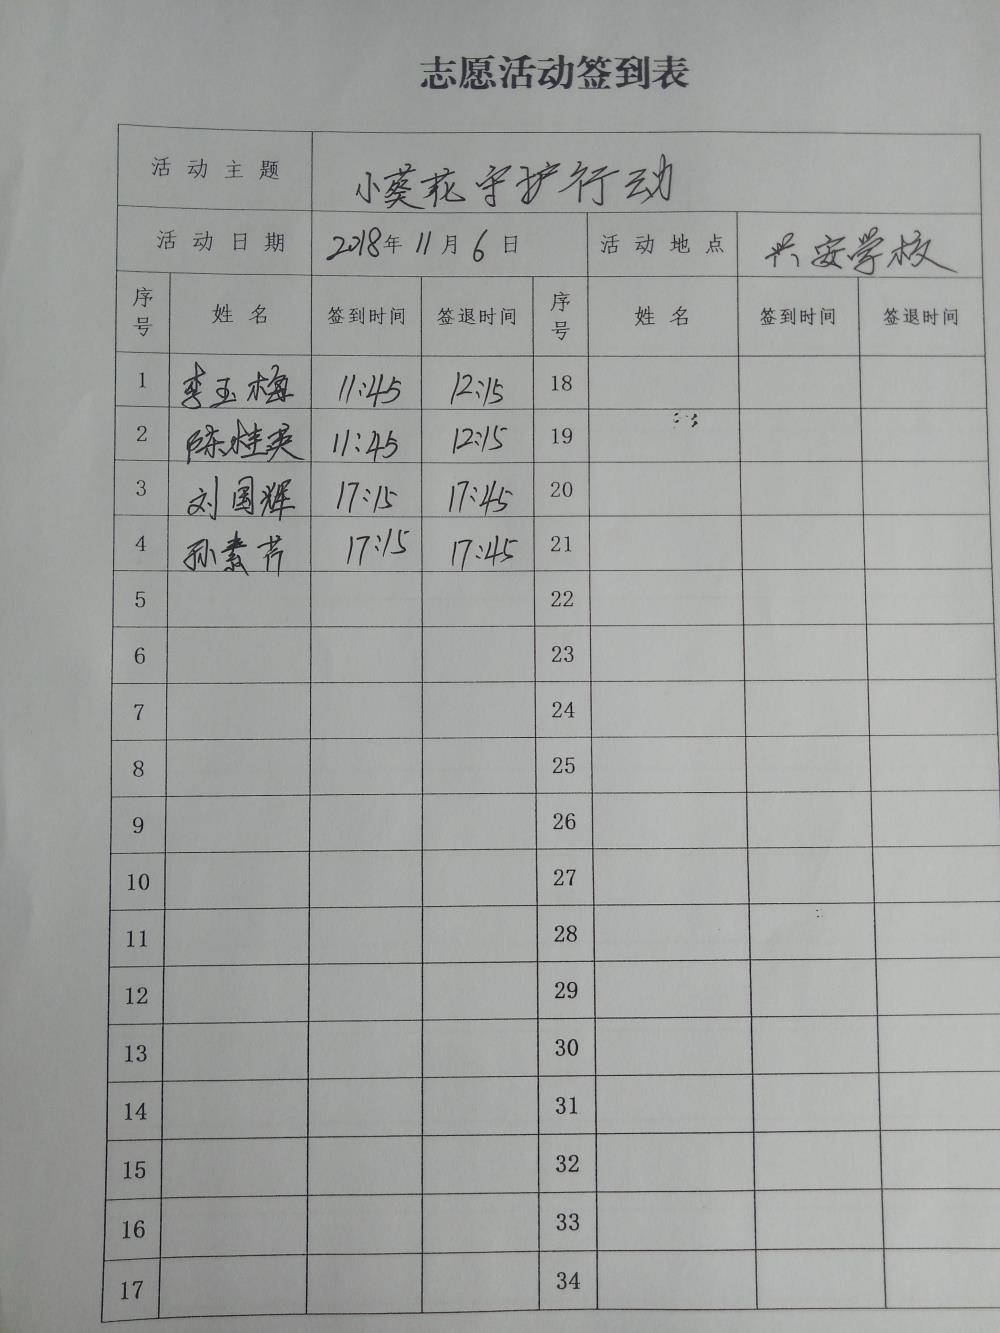 志愿活动签到表
活动主题 小葵花守护行动
活动日期 2018年11月6日 活动地点 兴安学校
序号 姓名 签到时间 签退时间 序号 姓名 签到时间 签退时间
1 李玉梅 11:45 12:15 18
2 陈桂英 11:45 12:15 19
3 刘国辉 17:15 17:45 20
4 孙素芹 17:15 17:45 21
5 22
6 23
7 24
8 25
9 26
10 27
11 28
12 29
13 30
14 31
15 32
16 33
17 34